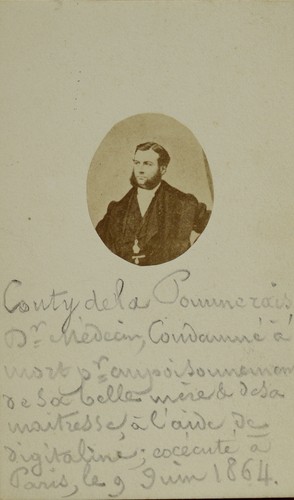 Couty de la Pommerais
Dr Médecin, Condamné à
mort pr empoisonnement
de sa belle mère & de sa
maitresse, à l'aide de
digitaline; exécuté à
Paris, le 9 Juin 1864.